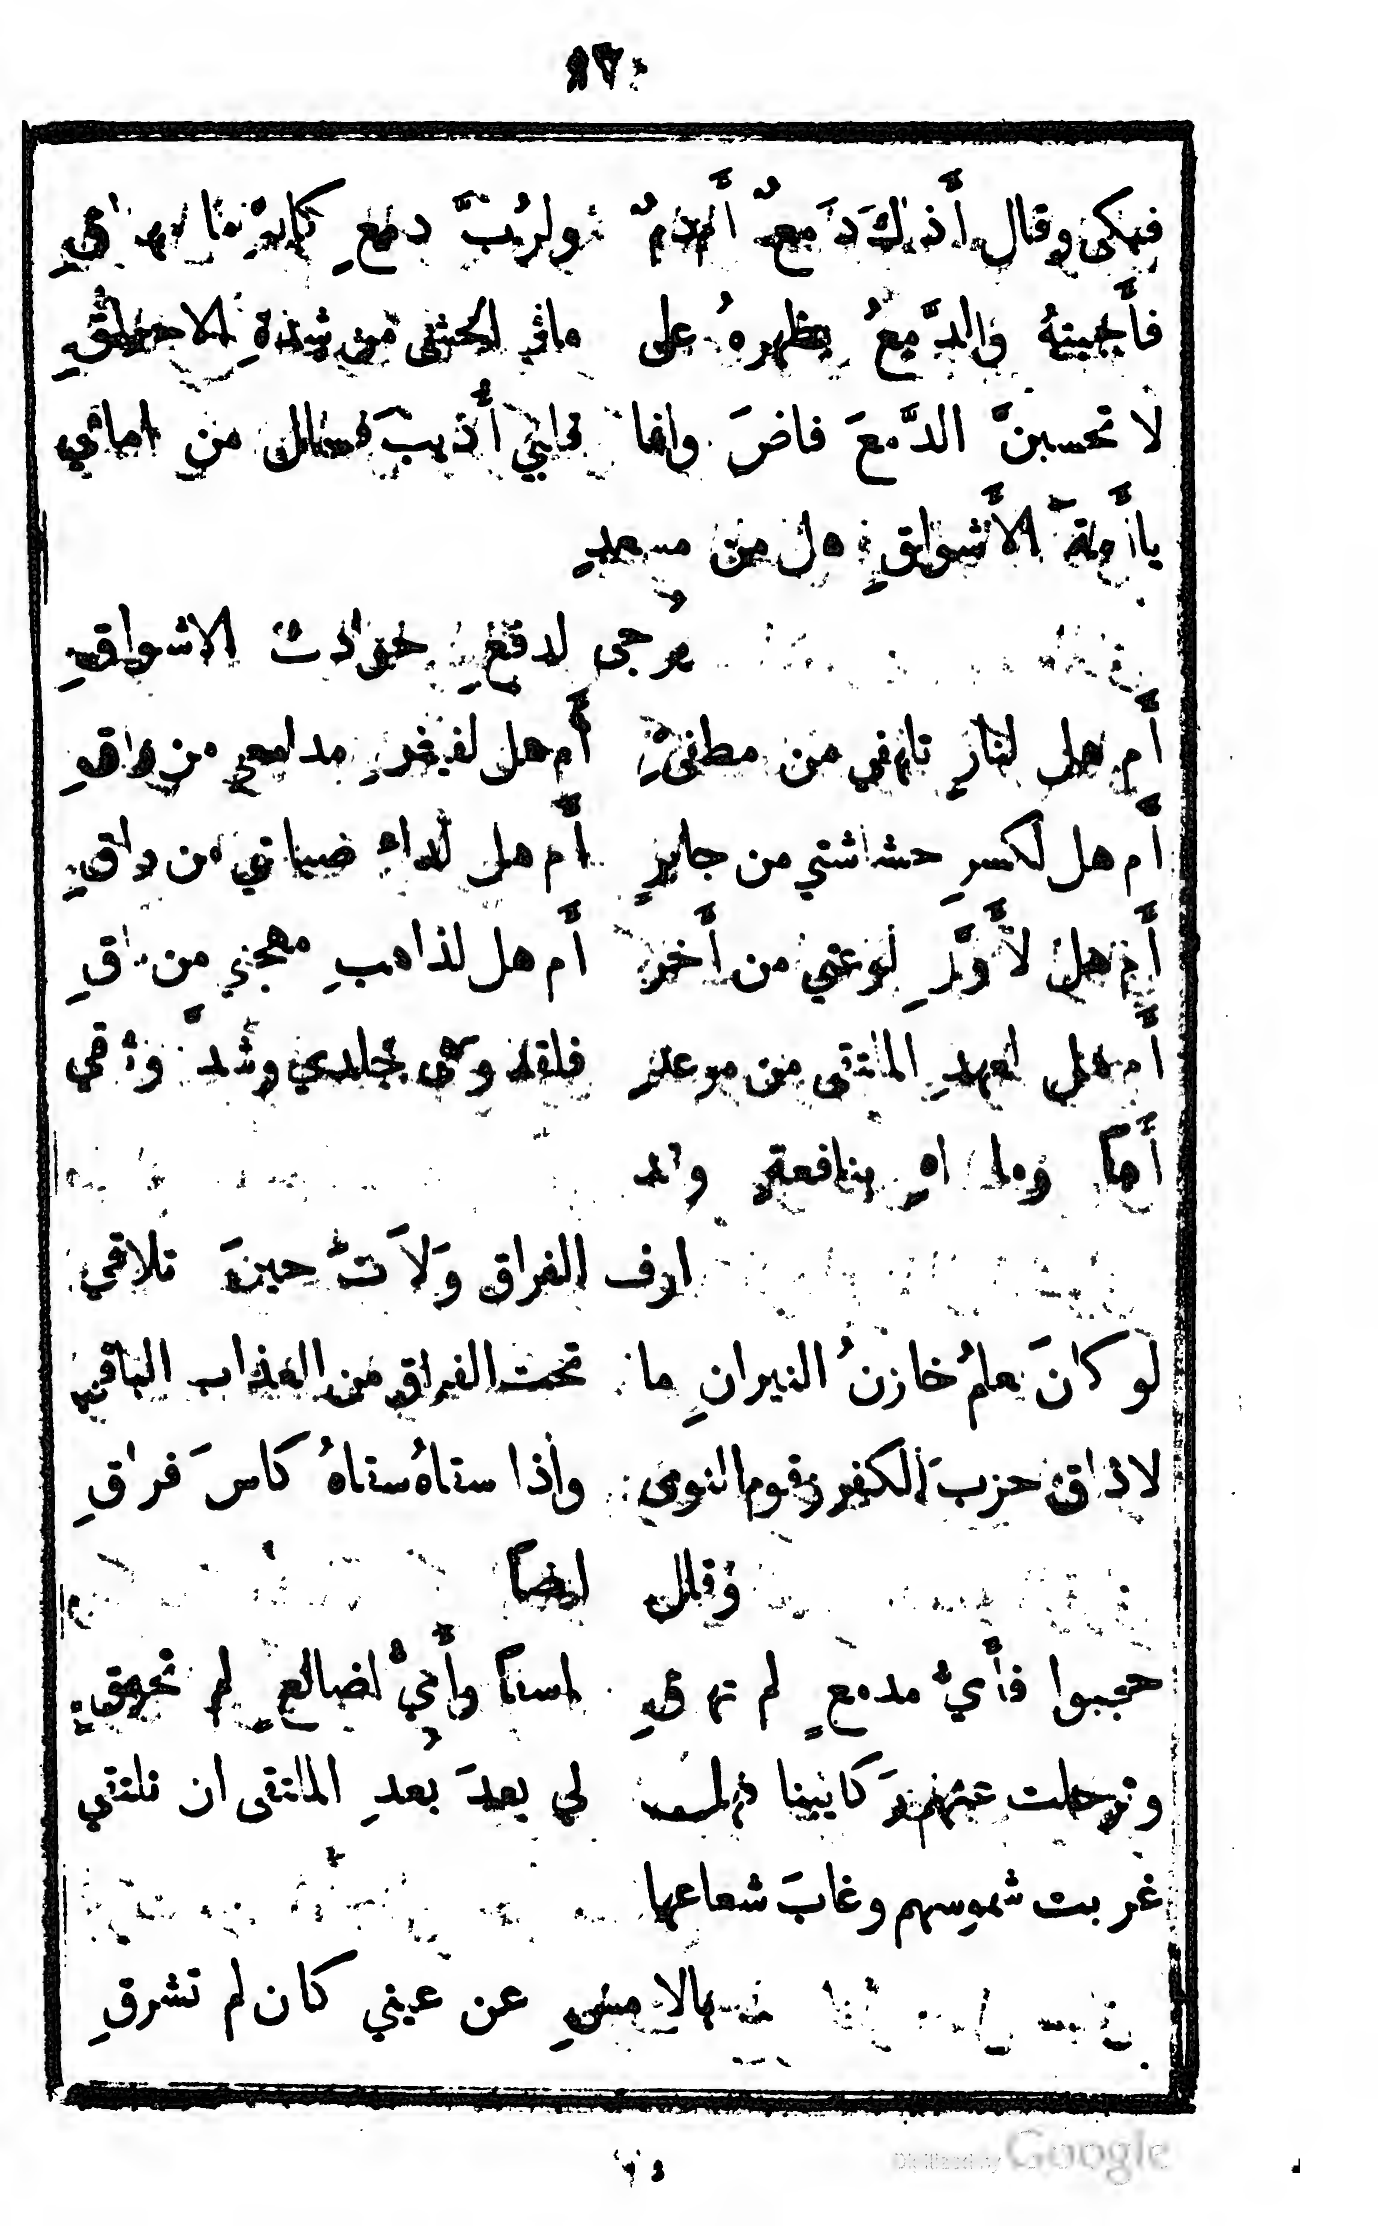 فبكى وقال أذلك دمعٌ أم دمٌ ولرُبَّ دمعٍ
فأجبته والدَّمعُ يظهرهُ على ما في الحشى من شدةِ
لا تحسبنَّ الدَّمعَ فاضَ وانما قلبي أُذيبَ فسال من اماقي
يا أزمةَ الأشواقِ هل من مسعدٍ
يُرجى لدفعِ حوادث الاشواقِ
أم هل لنارِ من مطفئٍ أم هل لفيضِ مدامعي من واقِ
أم هل لكسرِ حشاشتي من جابرٍ أم هل لداء من راقِ
أم هل لأوَّلِ لوعتي من أخرٍ أم هل لذاهبِ مهجتي من باقِ
أم هل لعهدِ الملتقى من موعدٍ فلقد وهى جلدي وشدَّ وثاقي
أهاً وما اهٍ بنافعةٍ وقد
ازف الفراق ولاتَ حينَ تلاقي
لو كانَ يعلمُ خازنُ النيرانِ ما تحت الفراقِ من العذاب الباقي
لاذاقَ حزبَ الكفر زقوم النوى واذا سقاهُ سقاهُ كاسَ فراقِ
وقال ايضاً
حجبوا فأيُّ مدمعٍ لم تهرقِ اسفاً وأيُّ اضالعٍ لم تحرقِ
وترحلت كايبنا فهل لي بعدَ بُعدِ الملتقى ان نلتقي
غربت شموسهم وغابَ شعاعها
بالامسِ عن عيني كان لم تشرقِ
Digitized by Google